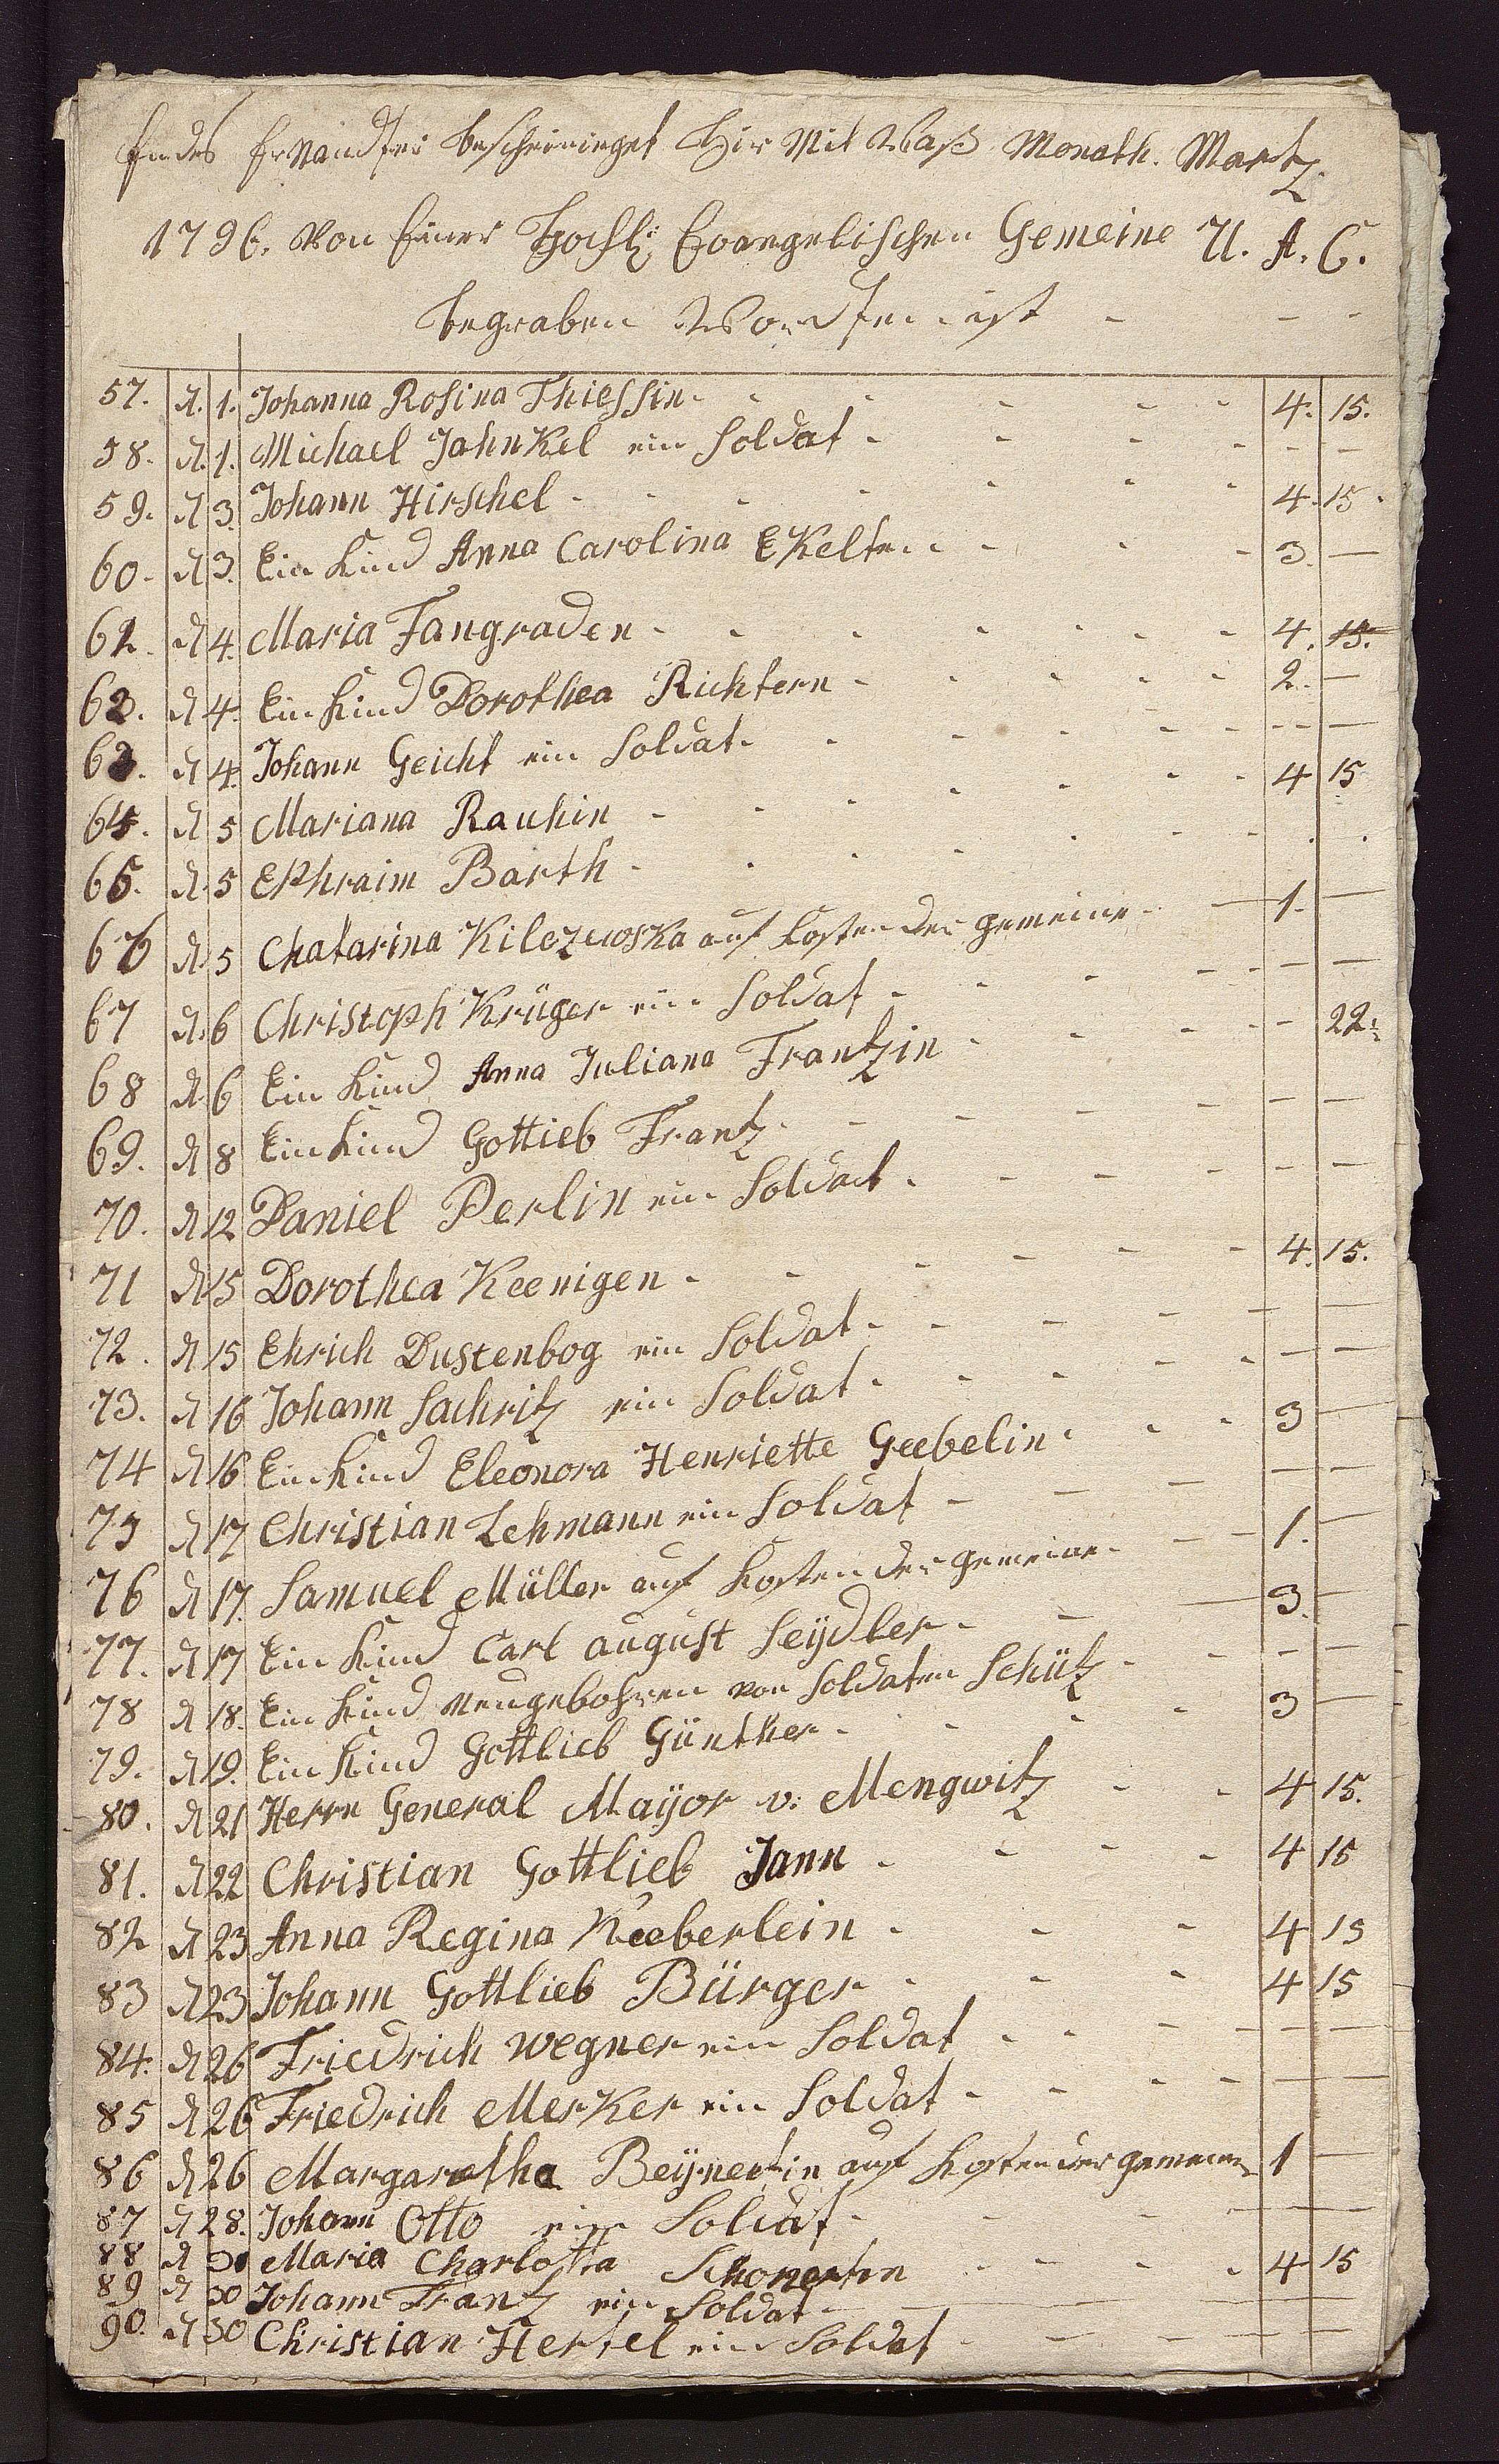 Endes Ernandter bescheiniget Hir Mit Waß Monath. Martz.
1796. Von Einer Hochl: Evangelischen Gemeine U. A. C.
begraben Worden ist - - -
57. d. 1. Johanna Rosina Thiessin - - - 4. 15.
58. d. 1. Michael Jahnkel ein Soldat - - - - -
59. d 3. Johann Hirschel - - - 4. 15.
60. d 3. Ein Kind Anna Carolina Ekelten - - - 3. —
61. d 4. Maria Fangraden - - - 4. 15.
62. d 4. Ein Kind Dorothea Richtern - - - 2. —
63. d 4. Johann Geicht ein Soldat - - - - -
64. d 5 Mariana Rauhin - - - 4 15
65. d. 5 Ephraim Barth - - - . .
66 d. 5 Chatarina Kilczewska auf Kosten der gemeine - - 1. —
67 d. 6 Christoph Krüger ein Soldat - - - - —
68 d. 6 Ein Kind Anna Juliana Frantzin - - - - 22.
69. d 8 Ein Kind Gottieb Frantz - - - - —
70. d 12 Daniel Perlin ein Soldat - - - - —
71 d 15 Dorothea Keenigen - - - 4. 15.
72. d 15 Ehrich Dustenbog ein Soldat - - - — —
73. d 16 Johann Sachritz ein Soldat - - - — —
74 d 16 Ein Kind Eleonora Henriette Geebelin - - - 3 —
75 d 17 Christian Lehmann ein Soldat - - - — —
76 d 17. Samuel Müller auf Kosten der gemeine - - 1. —
77. d 17 Ein Kind Carl august Seydler - - 3. —
78 d 18. Ein Kind Neugebohren von Soldaten Schütz - - - -
79. d 19. Ein Kind Gottlieb Günther - - - 3 —
80. d 21 Herrn General Mayor v: Mengwitz - - 4 15.
81. d 22 Christian Gottlieb Jann - - - 4 15
82 d 23 Anna Regina Keeberlein - - - 4 15
83 d 23 Johann Gottlieb Bürger - - - 4 15
84. d 26 Friedrich Wegner ein Soldat - - - — —
85 d 26 Friedrich Merker ein Soldat - - - — —
86 d 26 Margaretha Beynertin auf Kosten der gemeine 1 —
87 d 28. Johann Otto ein Soldat - - - — —
88 d 30 Maria Charlotta Schonertin - - - 4 15
89 d 30 Johann Frantz ein Soldat - — — —
90. d 30 Christian Hertel ein Soldat - - - — —